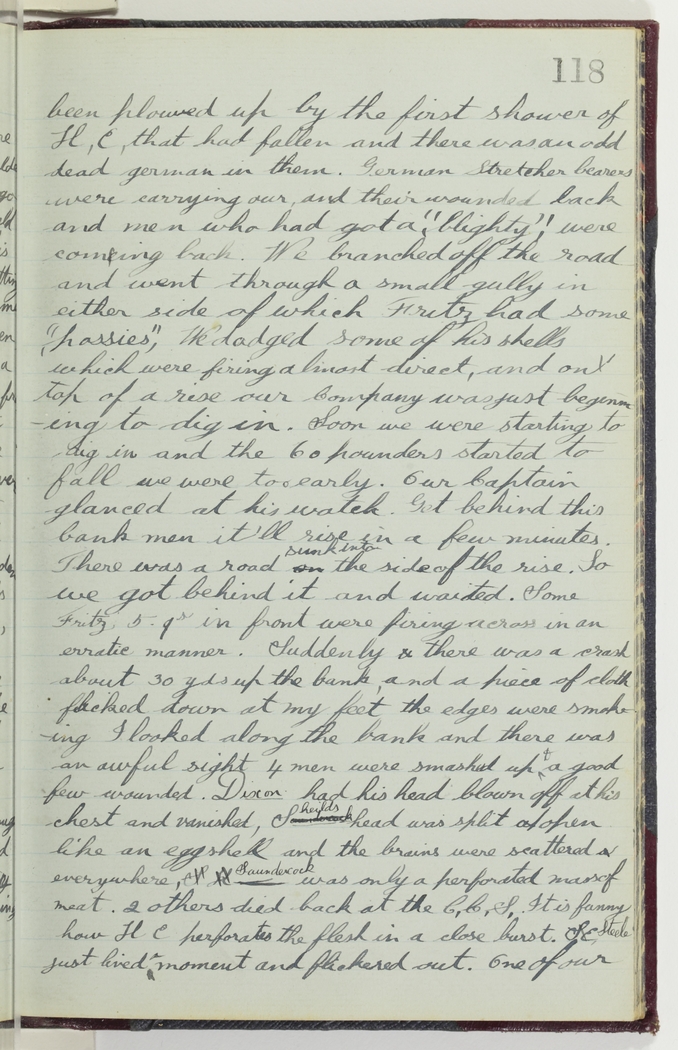 118
been plowed up by the first shower of
H, E, that had fallen and there was an odd
dead german in them. German Stretcher bearers
were carrying our, and their wounded back
and men who had got a "blighty"! were
coming back. We branched off the road
and went through a small gully in
either side of which Fritz had some
"possies", We dodged some of his shells
which were firing almost direct, and on
top of a rise our Company was just beginn
-ing to dig in. Soon we were starting to
dig in and the 60 pounders started to
fall we were too early. Our Captain
glanced at his watch. Get behind this
bank men it'll rise in a few minutes.
There was a road on sunk into the side of the rise. So
we got behind it and waited. Some
Fritz, 5.9s in front were firing across in an
erratic manner. Suddenly & there was a crash
about 30 yds up the bank, and a piece of cloth
flicked down at my feet the edges were smok-
-ing I looked along the bank and there was
an awful sight 4 men were smashed up, & a good
few wounded. Dixon had his head blown off at his
chest and vanished, Shields head was split open
like an eggshell and the brains were scattered
everywhere, Saundercock was only a perforated mass of
meat. 2 others died back at the C, C, S,. It is funny
how H E perforates the flesh in a close burst. Steele
just lived a moment and flickered out. One of our